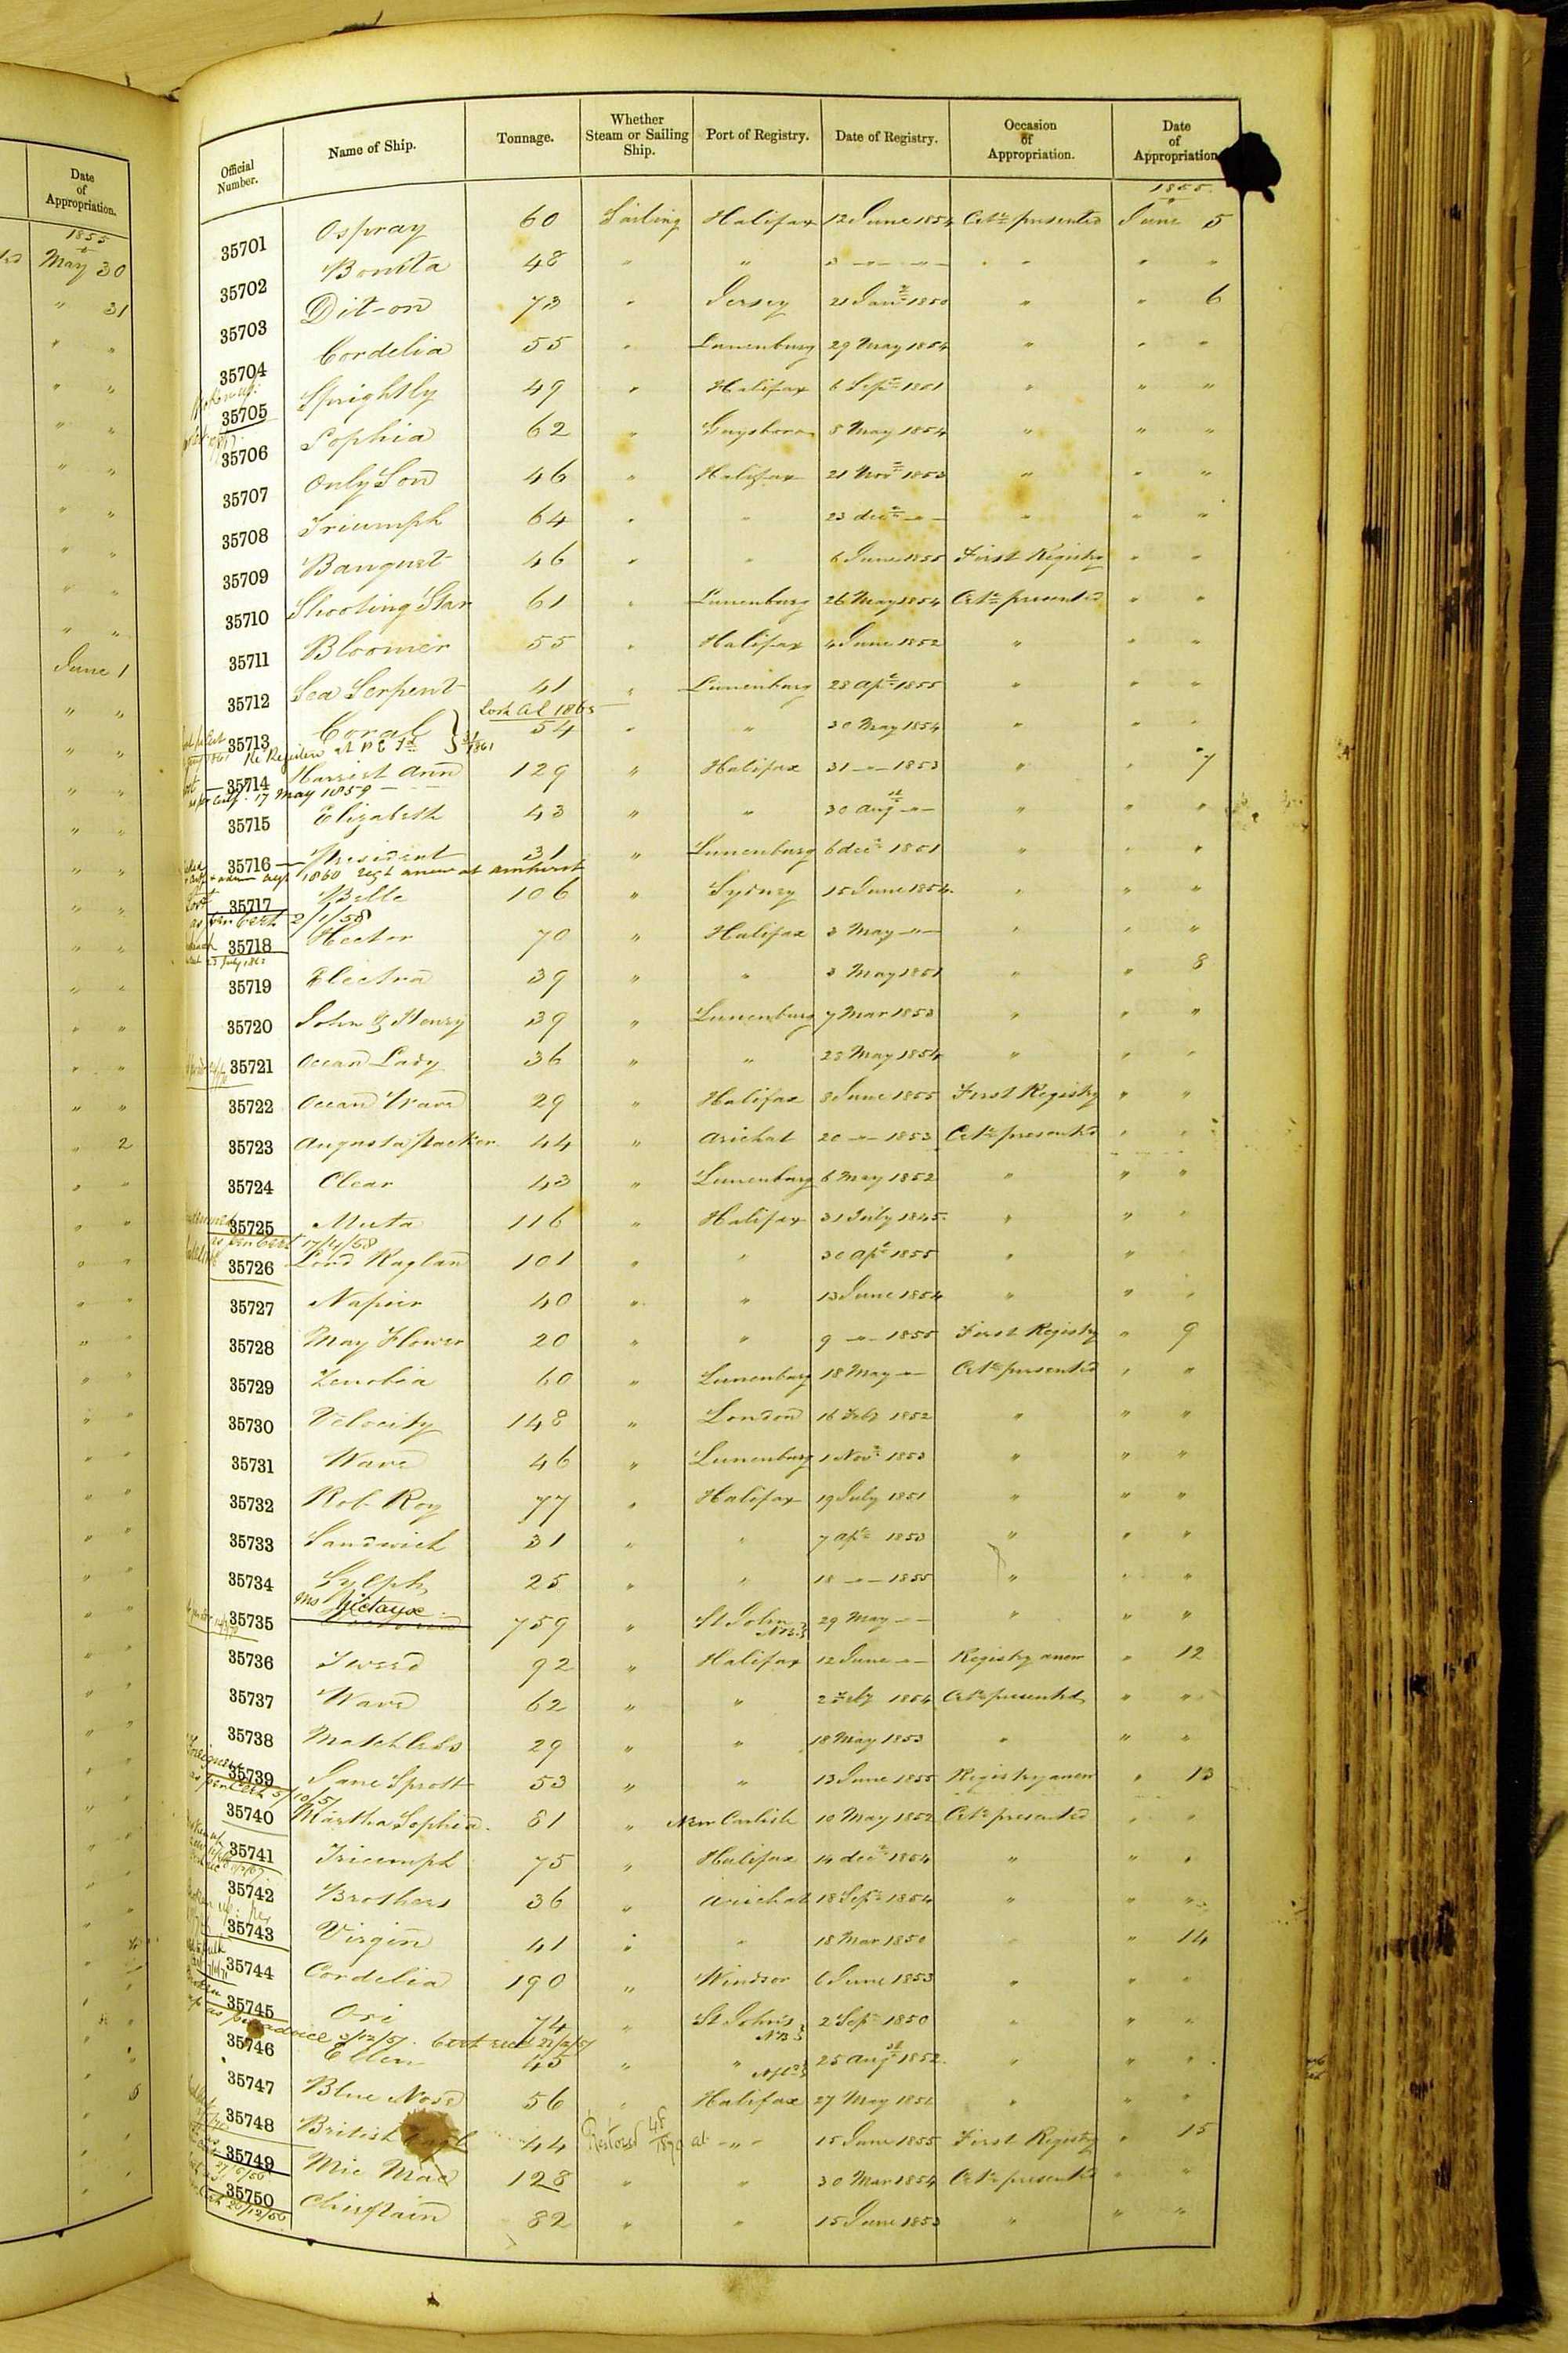 Date of Appropriation.
1855
May 30
" 31
June 1
" 2
Official Number. Name of Ship. Tonnage. Whether Steam or Sailing Ship. Port of Registry. Date of Registry. Occasion of Appropriation. Date of Appropriation
1855.
35701 Ospray 60 Sailing Halifax 12 June 1854 Cte presented June 5
35702 Bonita 48 " " 3 — " — " — " " " "
35703 Dit-on 73 " Jersey 21 Jany 1850 " " 6
35704 Cordelia 55 " Lunenburg 29 May 1854 " " "
35705 Sprightly 49 " Halifax 6 Sepr 1851 " " "
35706 Sophia 62 " Guysboro 8 May 1854 " " "
35707 Only Son 46 " Halifax 21 Novr 1853 " " "
35708 Triumph 64 " " 23 decr — " — " " "
35709 Banquet 46 " " 6 June 1855 First Registry " "
35710 Shooting Star 61 " Lunenburg 26 May 1854 Cte presented " "
35711 Bloomer 55 " Halifax 4 June 1852 " " "
35712 Sea Serpent 41 " Lunenburg 28 Apl 1855 " " "
Lost Al 1865
35713 Coral 54 " " 30 May 1854 " " "
Re Registered at P E Id 1861
35714 Harriet Ann 129 " Halifax 31 — " — 1853 " " 7
17 May 1859
35715 Elizabeth 43 " " 30 Augst — " — " " "
35716 President 31 " Lunenburg 6 decr 1851 " " "
1860 regd anew at Amherst
35717 Belle 106 " Sydney 15 June 1854 " " "
as per Cert 2/1/58
35718 Hector 70 " Halifax 3 May — " — " " "
23 July 1862
35719 Electra 39 " " 3 May 1851 " " 8
35720 John & Henry 39 " Lunenburg 7 Mar 1853 " " "
35721 Ocean Lady 36 " " 23 May 1854 " " "
35722 Ocean Wave 29 " Halifax 8 June 1855 First Registry " "
35723 Augusta Parker 44 " Arichat 20 — " — 1853 Cte presented " "
35724 Clear 43 " Lunenburg 6 May 1852 " " "
35725 Muta 116 " Halifax 31 July 1845 " " "
as per Cert 17/4/58
35726 Lord Raglan 101 " " 30 Apl 1855 " " "
35727 Napier 40 " " 13 June 1854 " " "
35728 May Flower 20 " " 9 — " — 1855 First Registry " 9
35729 Zenobia 60 " Lunenburg 18 May — " — Cte presented " "
35730 Velocity 148 " London 16 Feby 1852 " " "
35731 Wave 46 " Lunenburg 1 Novr 1853 " " "
35732 Rob Roy 77 " Halifax 19 July 1851 " " "
35733 Sandwich 31 " " 7 Apl 1853 " " "
35734 Sylph 25 " " 18 — " — 1855 " " "
35735 759 " St John NB 29 May — " — " " "
35736 Tweed 92 " Halifax 12 June — " — Registry anew " 12
35737 Wave 62 " " 2 Feby 1854 Cte presented " "
35738 Matchless 29 " " 18 May 1853 " " "
35739 Jane Sprott 53 " " 13 June 1855 Registry anew " 13
as per Cert 5/10/51
35740 Martha Sophia 81 " New Carlisle 10 May 1852 Cte presented " "
35741 Triumph 75 " Halifax 14 decr 1854 " " "
35742 Brothers 36 " Arichat 18 Sepr 1854 " " "
35743 Virgin 41 " " 18 Mar 1850 " " 14
35744 Cordelia 190 " Windsor 6 June 1853 " " "
35745 Ori 74 " St John's NB 2 Sepr 1850 " " "
up as per advice 3/12/57. Cert recd
35746 Ellen 45 " " Nfld 25 Augst 1852 " " "
35747 Blue Nose 56 " Halifax 27 May 1851 " " "
35748 British 44 Restored at — " — 15 June 1855 First Registry " 15
35749 Mic Mac 128 " " 30 Mar 1854 Cte presented " "
35750 Chieftain 82 " " 15 June 1853 " " "